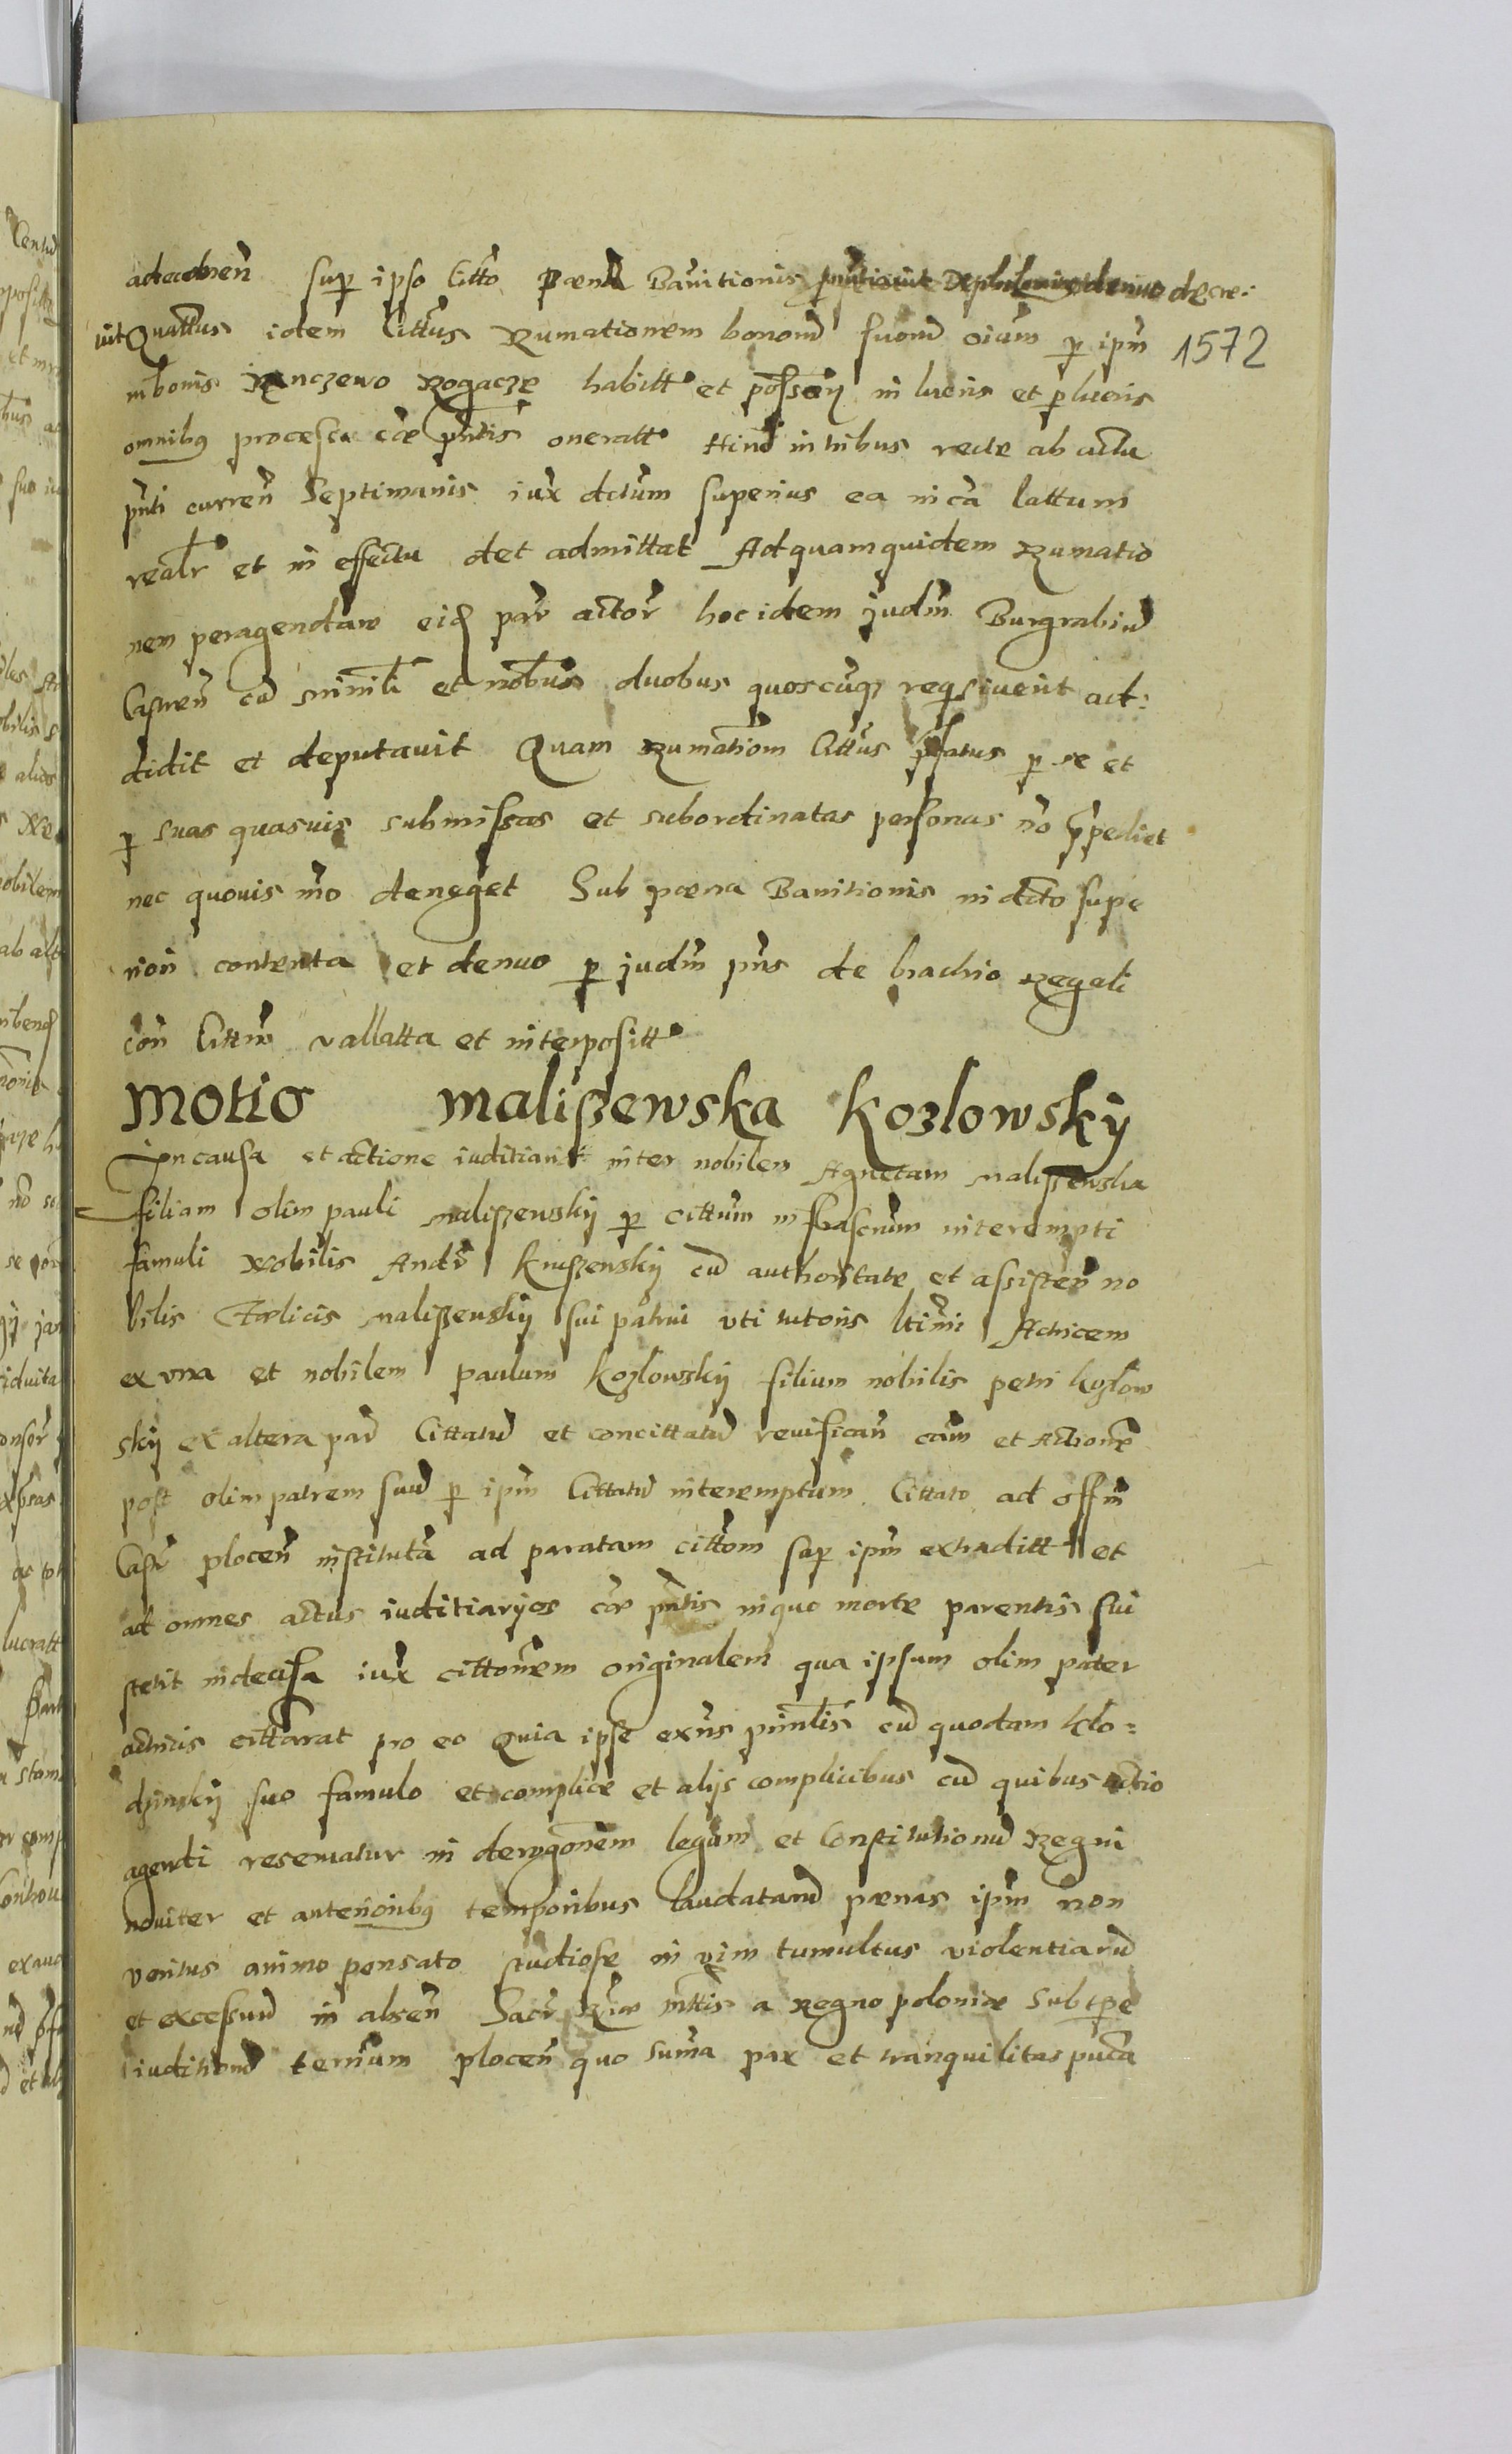 adecdnen̄ sup̱ ipso Citto pœna Banitionis denuo decre:
uit Quattus idem Cittus Rumationem bonorū suorū oium̄ p̱ ipm̄ 1572
in bonis Ranczewo Rogacze habitt et possess in lucris et p̱lucris
omnibus processu cae pn̄tis oneratt Hinc in tribus recte ab actu
pn̄ti curren̄ Septimanis iux dctum superius ea in cā lattum
realr̄ et in effectu det admittat Ad quam quidem Rumatio
nem peragendam eid par actor̄ hoc idem judm̄ Burgrabiū
Castren̄ cū minrli et nobbus duobus quoscunq reqsiuerit ad:
didit et deputauit Quam Rumationm Cittus pfatus p̱ se et
p̱ suas quasuis submissas et subordinatas personas nō ip̄pediet
nec quouis mō deneget Sub pœna Banitionis in dcto supe
riori contenta et denuo p̱ judm̄ pn̄s de brachio Regali
con̄ Cittm̄ vallatta et interpositt
Motio Maliszewska Kozlowskÿ
In causa et actione iuditiaria inter nobilem Agnetam Maliszewska
filiam olim pauli Maliszewskÿ p̱ cittum infrascrium interempti
famuli Nobilis Andr̄ Kruszewskÿ cū authoritate et assisten̄ no
bilis Fœlicis Maliszewskÿ sui patrui vti tutoris ltimi Actricem
ex vna et nobilem paulum Kozlowskÿ filium nobilis petri Kozlow
skÿ ex altera par̄ Cittatū et concittatū reuifican̄ cam̄ et Actionē
post olim patrem suū p̱ ipm̄ Cittatū interemptum Cittato ad offm̄
Castr̄ plocen̄ institutā ad paratam cittom̄ sup̱ ipm̄ extraditt et
ad omnes actus iuditiarÿos cae pn̄tis in quo morte parentis sui
stetit indecisa iux cittonem̄ originalem qua ipsum olim pater
actricis cittarat pro eo Quia ipse exn̄s prin̄lis cū quodam Klo=
dzinskÿ suo famulo et complice et alÿs complicibus cū quibus actio
agendi reseruatur in derogonem̄ legum et Constitutionū Regni
nouiter et anterioribus temporibus laudatarū pœnas ipm̄ non
veritus animo pensato studiose in vim tumultus violentiarū
et excessuū in absen̄ Sacr̄ Rm̄ mttis a Regno poloniæ sub tp̄e
iuditiorū terrium plocen̄ quo sum̄a pax et tranquilitas puca